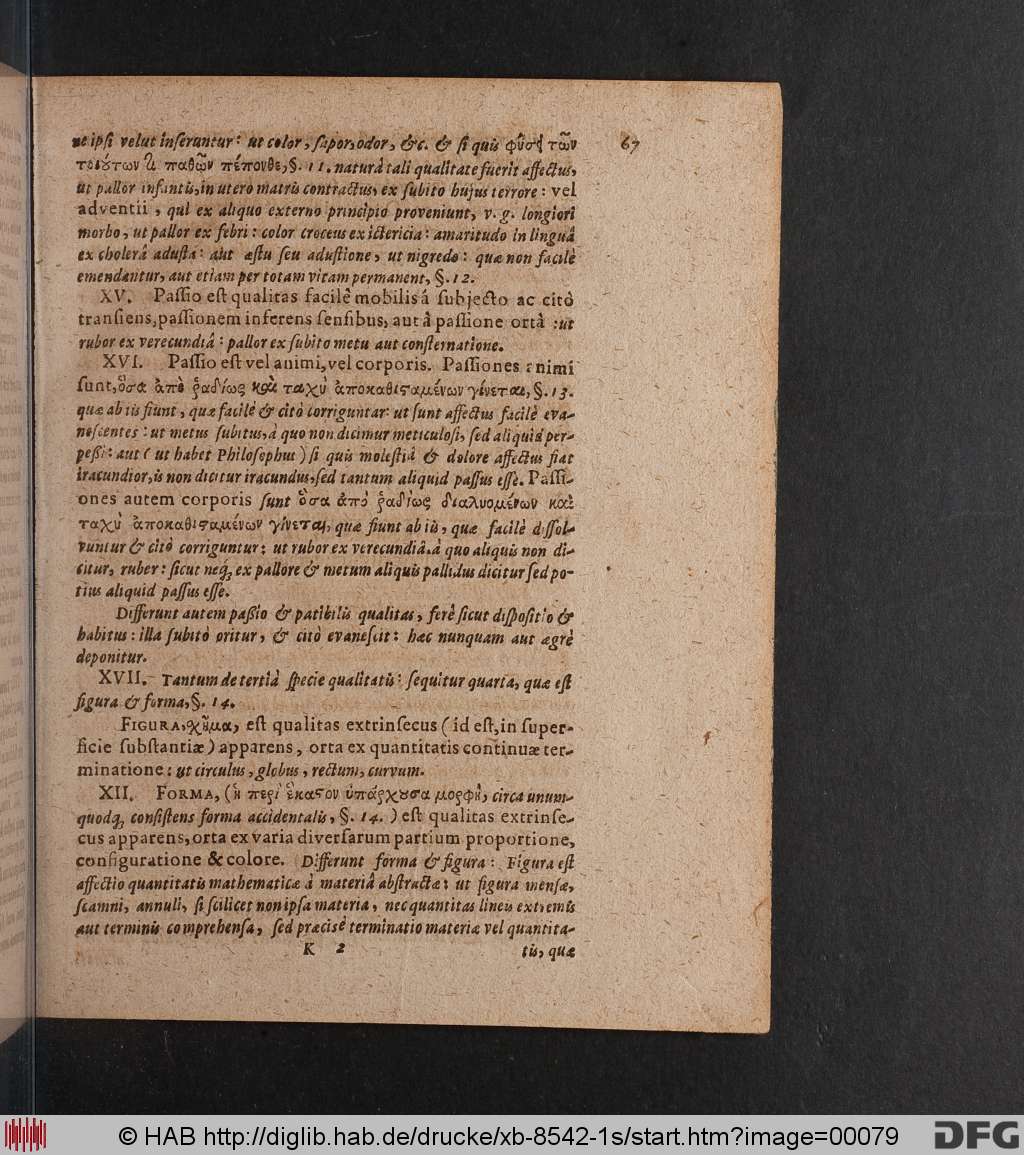 ut ipſi velut inſerantur: ut color, ſapor, odor, &c. & ſi quis φύσει τῶν
τοιούτων παθῶν πέπονθε, §. 11. naturâ tali qualitate fuerit affectus,
ut pallor infantis, in utero matris contractus, ex ſubito hujus terrore: vel
adventii, qui ex aliquo externo principio proveniunt, v. g. longiori
morbo, ut pallor ex febri: color croceus ex ictericia: amaritudo in linguâ
ex cholerâ aduſta: aut æſtu ſeu aduſtione, ut nigredo: quæ non facilè
emendantur, aut etiam per totam vitam permanent, §. 12.
XV. Paſſio eſt qualitas facilè mobilis á ſubjecto ac citò
tranſiens, paſſionem inferens ſenſibus, aut à paſſione ortà: ut
rubor ex verecundiâ: pallor ex ſubito metu aut conſternatione.
XVI. Paſſio eſt vel animi, vel corporis. Paſſiones animi
ſunt, ὅσα ἀπὸ ῥαδίως καὶ ταχὺ ἀποκαθισταμένων γίνεται, §. 13.
quæ ab iis fiunt, quæ facilè & citò corriguntur: ut ſunt affectus facilè eva-
neſcentes: ut metus ſubitus, à quo non dicimur meticuloſi, ſed aliquid per-
peßi: aut (ut habet Philoſophus) ſi quis moleſtiâ & dolore affectus fiat
iracundior, is non dicitur iracundus, ſed tantum aliquid paſſus eſſe. Paſſi-
ones autem corporis ſunt ὅσα ἀπὸ ῥαδίως διαλυομένων καὶ
ταχὺ ἀποκαθισταμένων γίνεται, quæ fiunt ab iis, quæ facilè diſſol-
vuntur & citò corriguntur: ut rubor ex verecundiâ. à quo aliquis non di-
citur, ruber: ſicut neq; ex pallore & metum aliquis pallidus dicitur ſed po-
tius aliquid paſſus eſſe.
Differunt autem paßio & patibilis qualitas, ferè ſicut diſpoſitio &
habitus: illa ſubitò oritur, & citò evaneſcit: hæc nunquam aut ægrè
deponitur.
XVII. Tantum de tertiâ ſpecie qualitatis: ſequitur quarta, quæ eſt
figura & forma, §. 14.
FIGURA, χῆμα, eſt qualitas extrinſecus (id eſt, in ſuper-
ficie ſubſtantiæ) apparens, orta ex quantitatis continuæ ter-
minatione: ut circulus, globus, rectum, curvum.
XII. FORMA, (ἡ περὶ ἕκαστον ὑπάρχουσα μορφὴ, circa unum-
quodq; conſiſtens forma accidentalis, §. 14.) eſt qualitas extrinſe-
cus apparens, orta ex varia diverſarum partium proportione,
configuratione & colore. Differunt forma & figura: Figura eſt
affectio quantitatis mathematicæ à materiâ abſtractæ: ut figura menſæ,
ſcamni, annuli, ſi ſcilicet non ipſa materia, nec quantitas lineis extremis
aut terminis comprehenſa, ſed præcisè terminatio materiæ vel quantita-
K 2 tis, quæ
67
© HAB http://diglib.hab.de/drucke/xb-8542-1s/start.htm?image=00079
DFG